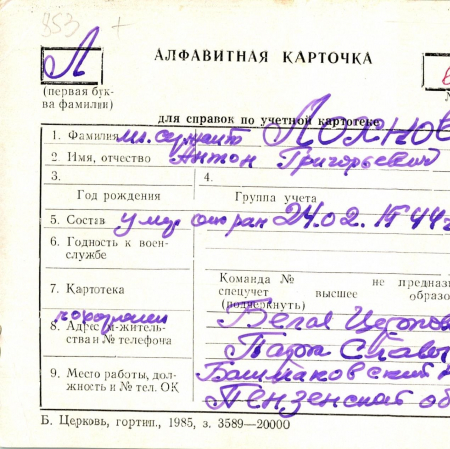 853 +
Л
АЛФАВИТНАЯ КАРТОЧКА
(первая бук-
ва фамилии)
для справок по учетной картотеке
1. Фамилия мл. сержант
2. Имя, отчество Антон Григорьевич
3. 4.
Год рождения Группа учета
5. Состав умер от ран 24.02.1944г
6. Годность к воен-
службе
Команда № не предназ
7. Картотека спецучет высшее образо
(подчеркнуть)
похоронен Белая Церковь
8. Адрес м-житель-
ства и № телефона Парк Славы
9. Место работы, дол-
жность и № тел. ОК Башмаковский
Пензенской об
Б. Церковь, гортип., 1985, з. 3589—20000